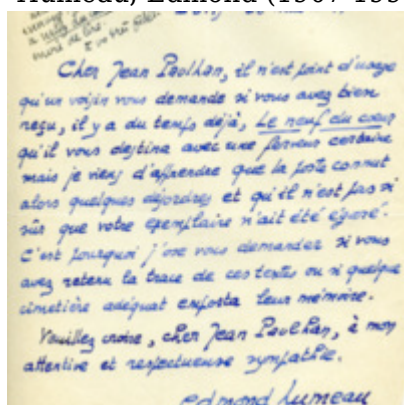 Humeau, Edmond (1907-199
Cher Jean Paulhan, il n'est point d'usage
qu'un voisin vous demande si vous avez bien
reçu, il y a du temps déjà, Le neuf du cœur
qu'il vous destina avec une ferveur certaine
mais je viens d'apprendre que la poste connut
alors quelques désordres et qu'il n'est pas si
sûr que votre exemplaire n'ait été égaré.
C'est pourquoi j'ose vous demander si vous
avez retenu la trace de ces textes ou si quelque
cimetière adéquat emporta leur mémoire.
Veuillez croire, cher Jean Paulhan, à mon
attentive et respectueuse sympathie.
Edmond Humeau